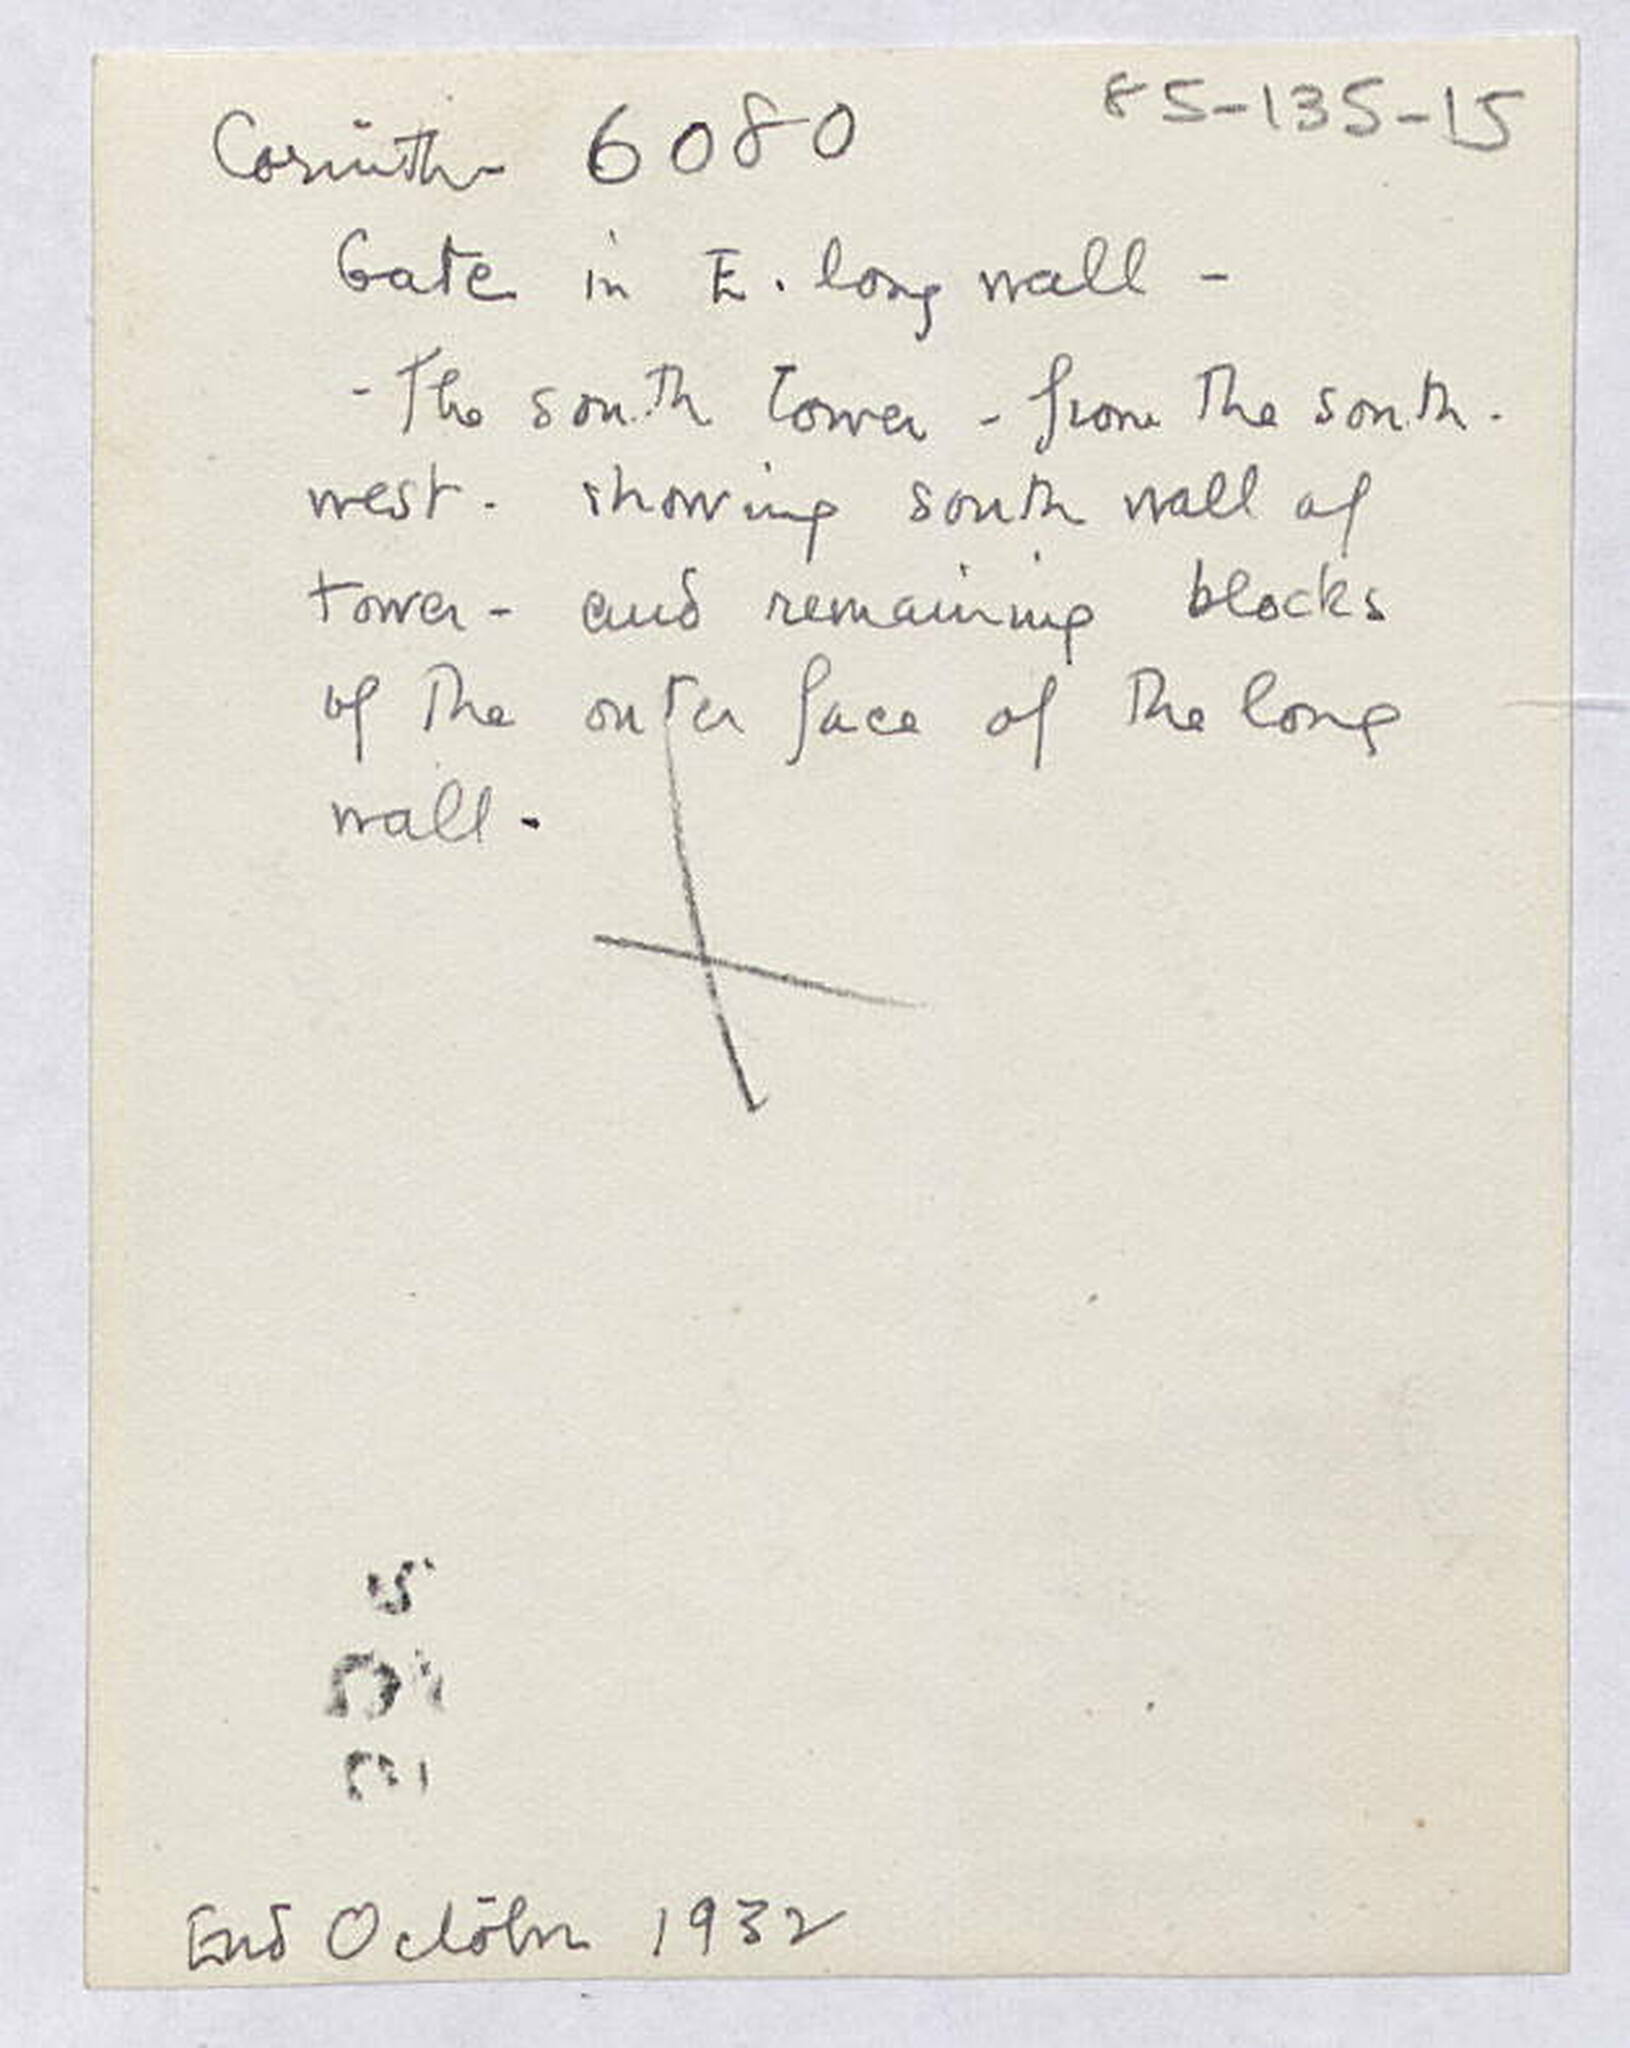 85-135-15
Corinth 6080
Gate in E. long wall -
- The south tower - from the south-
west. showing south wall of
tower - and remaining blocks
of the outer face of the long
wall.
End October 1932